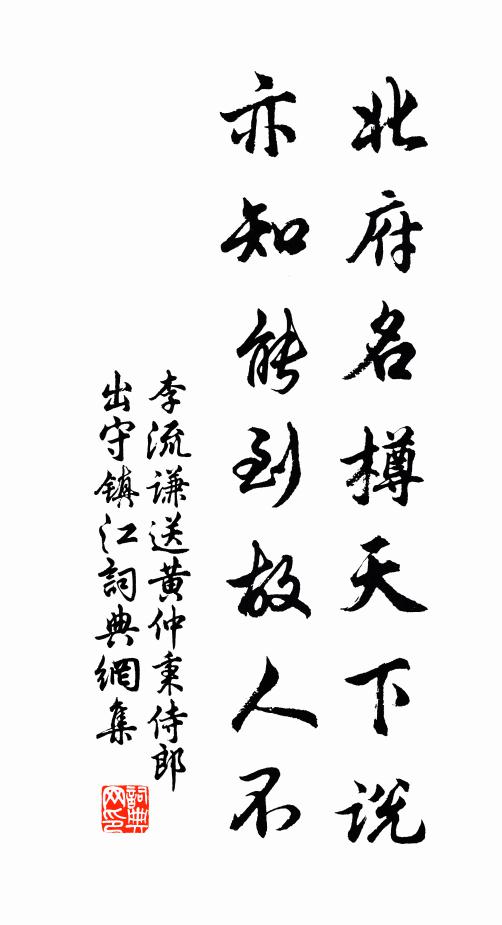 北府名樽天下說
亦知能到故人不
李流謙送黄仲秉侍郎
出守鎮江詞典網集
詞典
网印